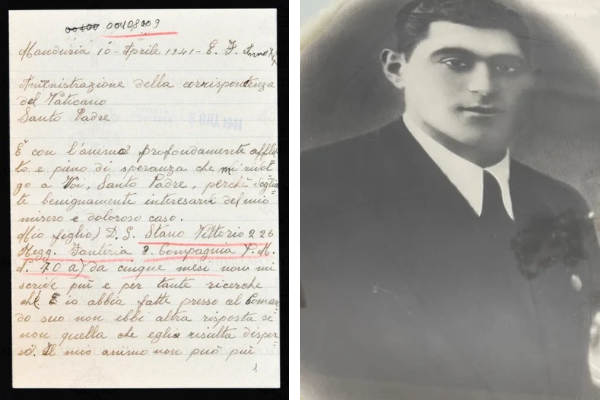 00108009
Manduria 10 - Aprile 1941 - E. F.
Amministrazione della corrispondenza
del Vaticano
Santo Padre
È con l'animo profondamente afflit-
to e pieno di speranza che mi rivol-
go a Voi, Santo Padre, perchè voglia-
te benignamente interessarvi del mio
misero e doloroso caso.
Mio figlio) D. G. Stano Vittorio 226
Regg. Fanteria 2. Compagnia P. M.
N. 70 a) da cinque mesi non mi
scrive più e per tante ricerche
che io abbia fatte presso al Coman
do suo non ebbi altra risposta se
non quella che egli risulta disper
so. Il mio animo non può più
1